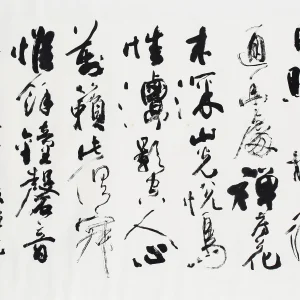 日照
通幽處禪房花
木深山光悅鳥
性潭影空人心
萬籟此俱寂
惟餘鐘磬音